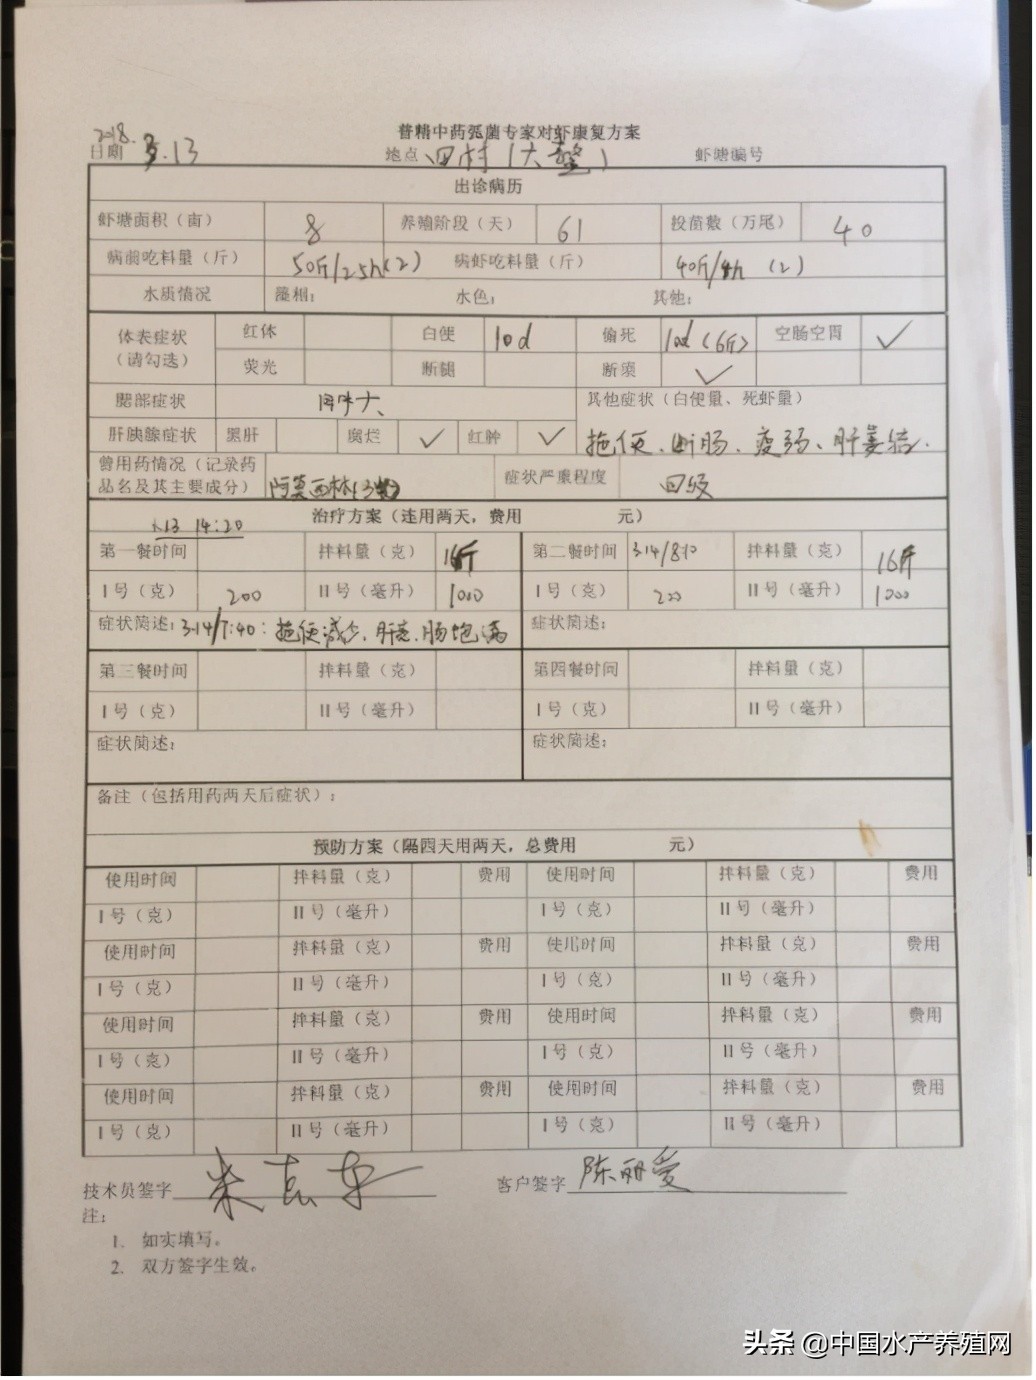 普精中药弧菌专家对虾康复方案
日期 2018. 3.13 地点 田村(大 ) 虾塘编号
出诊病历
虾塘面积（亩） 8 养殖阶段（天） 61 投苗数（万尾） 40
病前吃料量（斤） 50斤/2.5h(2) 病虾吃料量（斤） 40斤/4h (2)
水质情况 藻相： 水色： 其他：
体表症状（请勾选） 红体 白便 10d 偷死 10d (6斤) 空肠空胃 ✓
荧光 断腿 断须 ✓
腮部症状 其他症状（白便量、死虾量）
肝胰腺症状 黑肝 腐烂 ✓ 红肿 ✓ 拖便、断肠、疲弱、肝萎缩.
曾用药情况（记录药品名及其主要成分） 阿莫西林 症状严重程度 四级
治疗方案（连用两天，费用 元）
3.13 14:20
第一餐时间 拌料量（克） 16斤 第二餐时间 3.14/8:10 拌料量（克） 16斤
I号（克） 200 II号（毫升） 1000 I号（克） 200 II号（毫升） 1000
症状简述：3.14/7:40：拖便减少、肝 、肠饱满 症状简述：
第三餐时间 拌料量（克） 第四餐时间 拌料量（克）
I号（克） II号（毫升） I号（克） II号（毫升）
症状简述： 症状简述：
备注（包括用药两天后症状）：
预防方案（隔四天用两天，总费用 元）
使用时间 拌料量（克） 费用 使用时间 拌料量（克） 费用
I号（克） II号（毫升） I号（克） II号（毫升）
使用时间 拌料量（克） 费用 使用时间 拌料量（克） 费用
I号（克） II号（毫升） I号（克） II号（毫升）
使用时间 拌料量（克） 费用 使用时间 拌料量（克） 费用
I号（克） II号（毫升） I号（克） II号（毫升）
使用时间 拌料量（克） 费用 使用时间 拌料量（克） 费用
I号（克） II号（毫升） I号（克） II号（毫升）
技术员签字 客户签字 陈丽爱
注：
1. 如实填写。
2. 双方签字生效。
头条 @中国水产养殖网